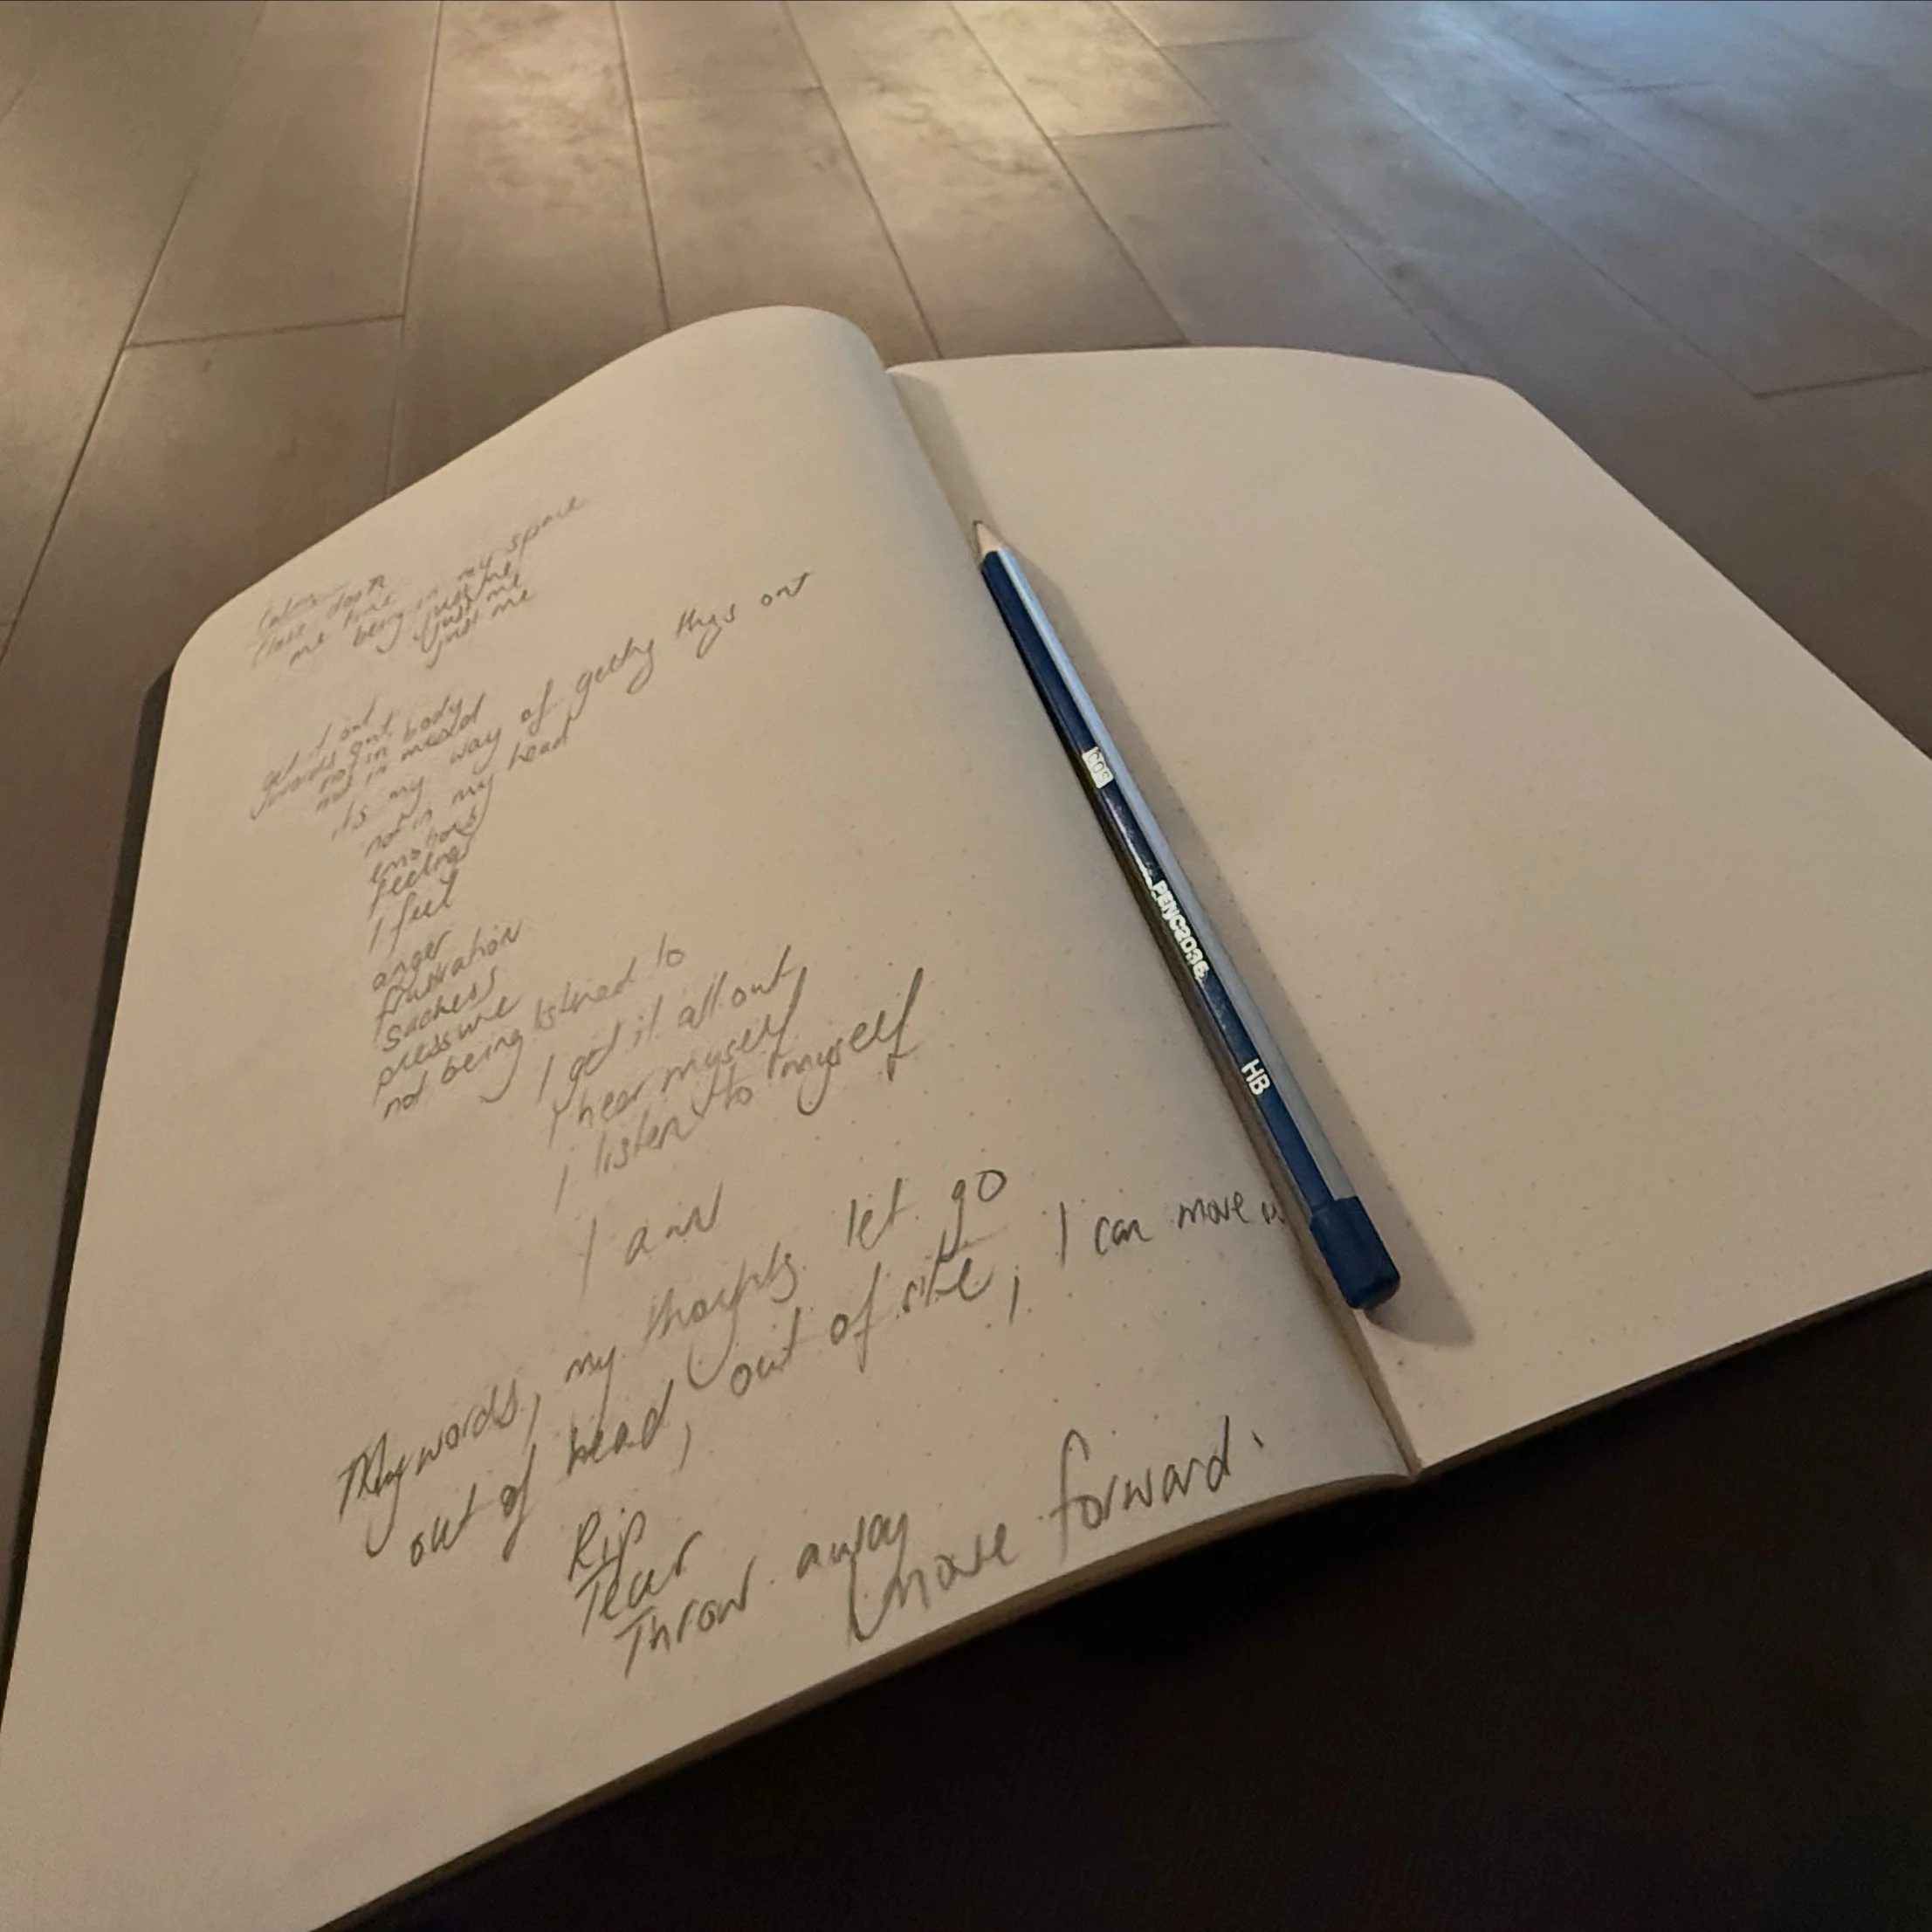 Calm
Close door
me time
me being in my space
just me
just me
just me
get it out
words out
not in body
not in mind
its my way of getting thgs out
not in my head
emotions
feelings
I feel
anger
frustration
sadness
pressure
not being listned to
I get it all out
I hear myself
I listen to myself
I am
My words, my thoughts let go
out of head, out of site, I can move
Rip
Tear
Throw away
move forward.
1009
PENCZ036
HB